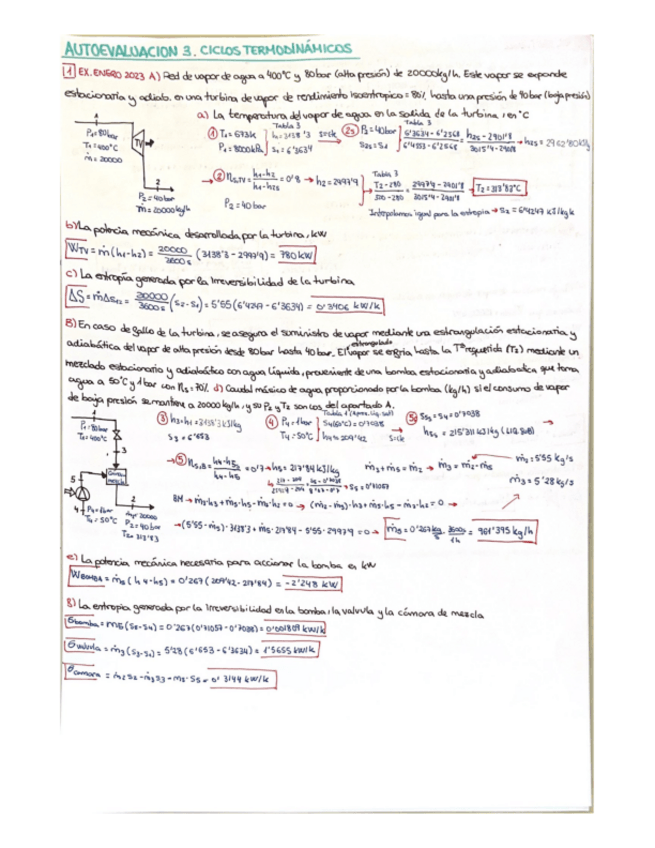 AUTOEVALUACION 3. CICLOS TERMODINÁMICOS
1 EX. ENERO 2023 A) Red de vapor de agua a 400°C y 80 bar (alta presión) de 20000 kg/h. Este vapor se expande
estacionaria y adiab. en una turbina de vapor de rendimiento isoentropico = 80% hasta una presión de 40 bar (baja presión)
a) La temperatura del vapor de agua en la salida de la turbina, en °C
1
P1 = 80 bar
T1 = 400°C
ṁ = 20000
TV
2
P2 = 40 bar
ṁ = 20000 kg/h
① T1 = 673k
P1 = 8000 kPa
Tabla 3
h1 = 3138'3
s1 = 6'3634
s=ck
2s P2 = 40 bar
S2s = S1
Tabla 3
6'3634 - 6'2568 / 6'4553 - 6'2568 = h2s - 2901'8 / 3015'4 - 2901'8 → h2s = 2962'80 kJ/kg
② ηs,TV = h1-h2 / h1-h2s = 0'8 → h2 = 2997'9
P2 = 40 bar
Tabla 3
T2 - 280 / 300 - 280 = 2997'9 - 2901'8 / 3015'4 - 2901'8 → T2 = 313'83°C
Interpolamos igual para la entropia → s2 = 6'4247 kJ/kg k
b) La potencia mecánica desarrollada por la turbina, kW
WTV = ṁ (h1-h2) = 20000 / 3600 s (3138'3 - 2997'9) = 780 kW
c) La entropía generada por la irreversibilidad de la turbina
ΔS = ṁ Δs12 = 20000 / 3600 s (s2 - s1) = 5'55 (6'4247 - 6'3634) = 0'3406 kW/k
B) En caso de fallo de la turbina, se asegura el suministro de vapor mediante una estrangulación estacionaria y
adiabática del vapor de alta presión desde 80 bar hasta 40 bar. El vapor estrangulado se enfria, hasta la Tª requerida (T2) mediante un
mezclado estacionario y adiabático con agua líquida, proveniente de una bomba estacionaria y adiabatica que toma
agua a 50°C y 1 bar con ηs = 70%. d) Caudal másico de agua proporcionado por la bomba (kg/h) si el consumo de vapor
de baja presión se mantiene a 20000 kg/h, y su P2 y T2 son los del apartado A.
1
P1 = 80 bar
T1 = 400°C
3
5
4
P4 = 1 bar
T4 = 50°C
2
P2 = 40 bar
③ h3 = h1 = 3138'3 kJ/kg
s3 = 6'653
④ P4 = 1 bar
T4 = 50°C
s4 (50°C) = 0'7038
h4 = 209'42
s=ck
5s S5s = S4 = 0'7038
⑤ ηs,B = h4-h5s / h4-h5 = 0'7 → h5 = 217'84 kJ/kg
s5 = 0'71057
ṁ3 + ṁ5 = ṁ2 → ṁ3 = ṁ2 - ṁ5
ṁ2 = 5'55 kg/s
ṁ3 = 5'28 kg/s
BM → ṁ3·h3 + ṁ5·h5 - ṁ2·h2 = 0 → (ṁ2 - ṁ5)·h3 + ṁ5·h5 - ṁ2·h2 = 0 →
→ (5'55 - ṁ5)·3138'3 + ṁ5·217'84 - 5'55·2997'9 = 0 → ṁ5 = 0'267 kg/s · 3600 s / 1 h = 961'395 kg/h
e) La potencia mecánica necesaria para accionar la bomba en kW
WBOMBA = ṁ5 (h4 - h5) = 0'267 (209'42 - 217'84) = -2'248 kW
f) La entropia generada por la irreversibilidad en la bomba, la valvula y la cámara de mezcla
σbomba = ṁ5 (s5 - s4) = 0'267 (0'71057 - 0'7038) = 0'001807 kW/k
σvalvula = ṁ3 (s3 - s1) = 5'28 (6'653 - 6'3634) = 1'5655 kW/k
σcamara = ṁ2 s2 - ṁ3 s3 - ṁ5 · s5 = 0' 3144 kW/k